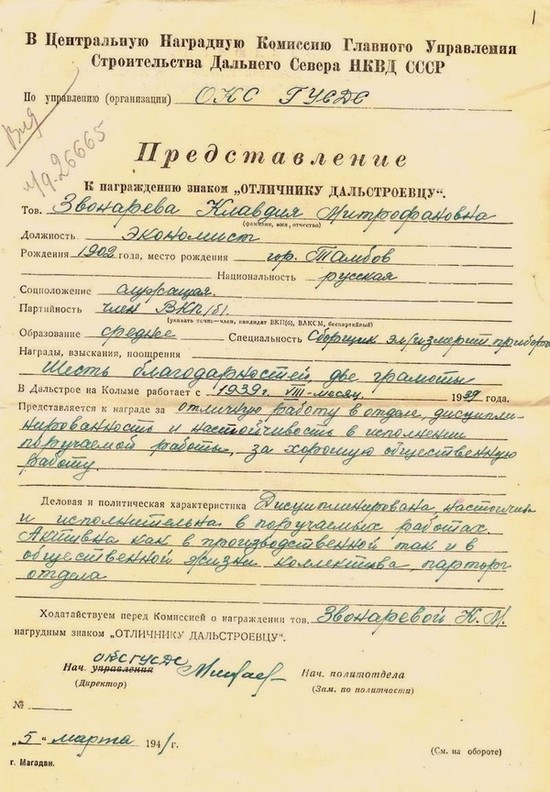 1
В Центральную Наградную Комиссию Главного Управления
Строительства Дальнего Севера НКВД СССР
По управлению (организации) ОКС ГУСДС
Вид
№ 9.26665
Представление
К награждению знаком „ОТЛИЧНИКУ ДАЛЬСТРОЕВЦУ".
Тов. Звонарева Клавдия Митрофановна
(фамилия, имя, отчество)
Должность экономист
Рождения 1902 года, место рождения гор. Тамбов
Национальность русская
Соцположение служащая.
Партийность член ВКП/б/.
(указать точно—член, кандидат ВКП(б), ВЛКСМ, беспартийный)
Образование среднее Специальность Сборщик эл/измерит приборов
Награды, взыскания, поощрения
Шесть благодарностей, две грамоты
В Дальстрое на Колыме работает с 1939 г. VIII-месяц 1939 года.
Представляется к награде за отличную работу в отделе, дисципли-
нированность и настойчивость в исполнении
поручаемой работы, за хорошую общественную
работу.
Деловая и политическая характеристика Дисциплинирована, настойчива
и исполнительна в поручаемых работах.
Активна как в производственной так и в
общественной жизни коллектива, парторг
отдела
Ходатайствуем перед Комиссией о награждении тов. Звонаревой К. М.
нагрудным знаком „ОТЛИЧНИКУ ДАЛЬСТРОЕВЦУ".
ОКС ГУСДС
Нач. управления Нач. политотдела
(Директор) (Зам. по политчасти)
№
„5" марта 1941 г.
(См. на обороте)
г. Магадан.